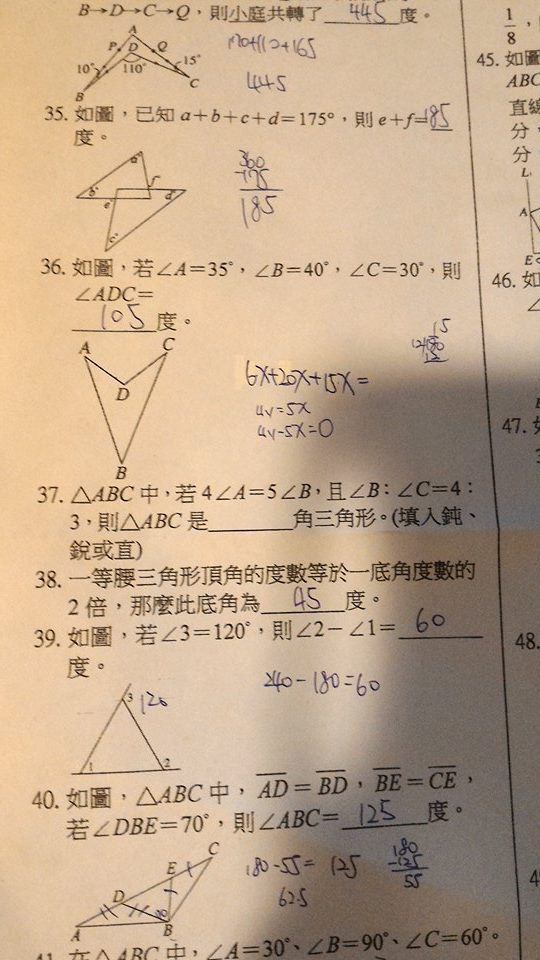 B→D→C→Q，則小庭共轉了 445 度。
170+110+165
445
A
P D Q
10° 110° 15°
B C
35. 如圖，已知 a+b+c+d=175°，則 e+f= 185
度。
360
-175
185
a°
b° e f d°
c°
36. 如圖，若∠A=35°，∠B=40°，∠C=30°，則
∠ADC=
105 度。
A C
D
B
6x+20x+15x=
4y=5x
4y-5x=0
37. △ABC 中，若 4∠A=5∠B，且∠B：∠C=4：
3，則△ABC 是 角三角形。(填入鈍、
銳或直)
38. 一等腰三角形頂角的度數等於一底角度數的
2 倍，那麼此底角為 45 度。
39. 如圖，若∠3=120°，則∠2-∠1= 60
度。
240-180=60
3 120
1 2
40. 如圖，△ABC 中，AD=BD，BE=CE，
若∠DBE=70°，則∠ABC= 125 度。
180-55= 125
62.5
180
-125
55
C
E
D
70
A B
41. 在△ABC 中，∠A=30°、∠B=90°、∠C=60°。
1
8
45. 如圖
ABC
直線
分，
分
L
A
E
46. 如
∠
47.
3
48.